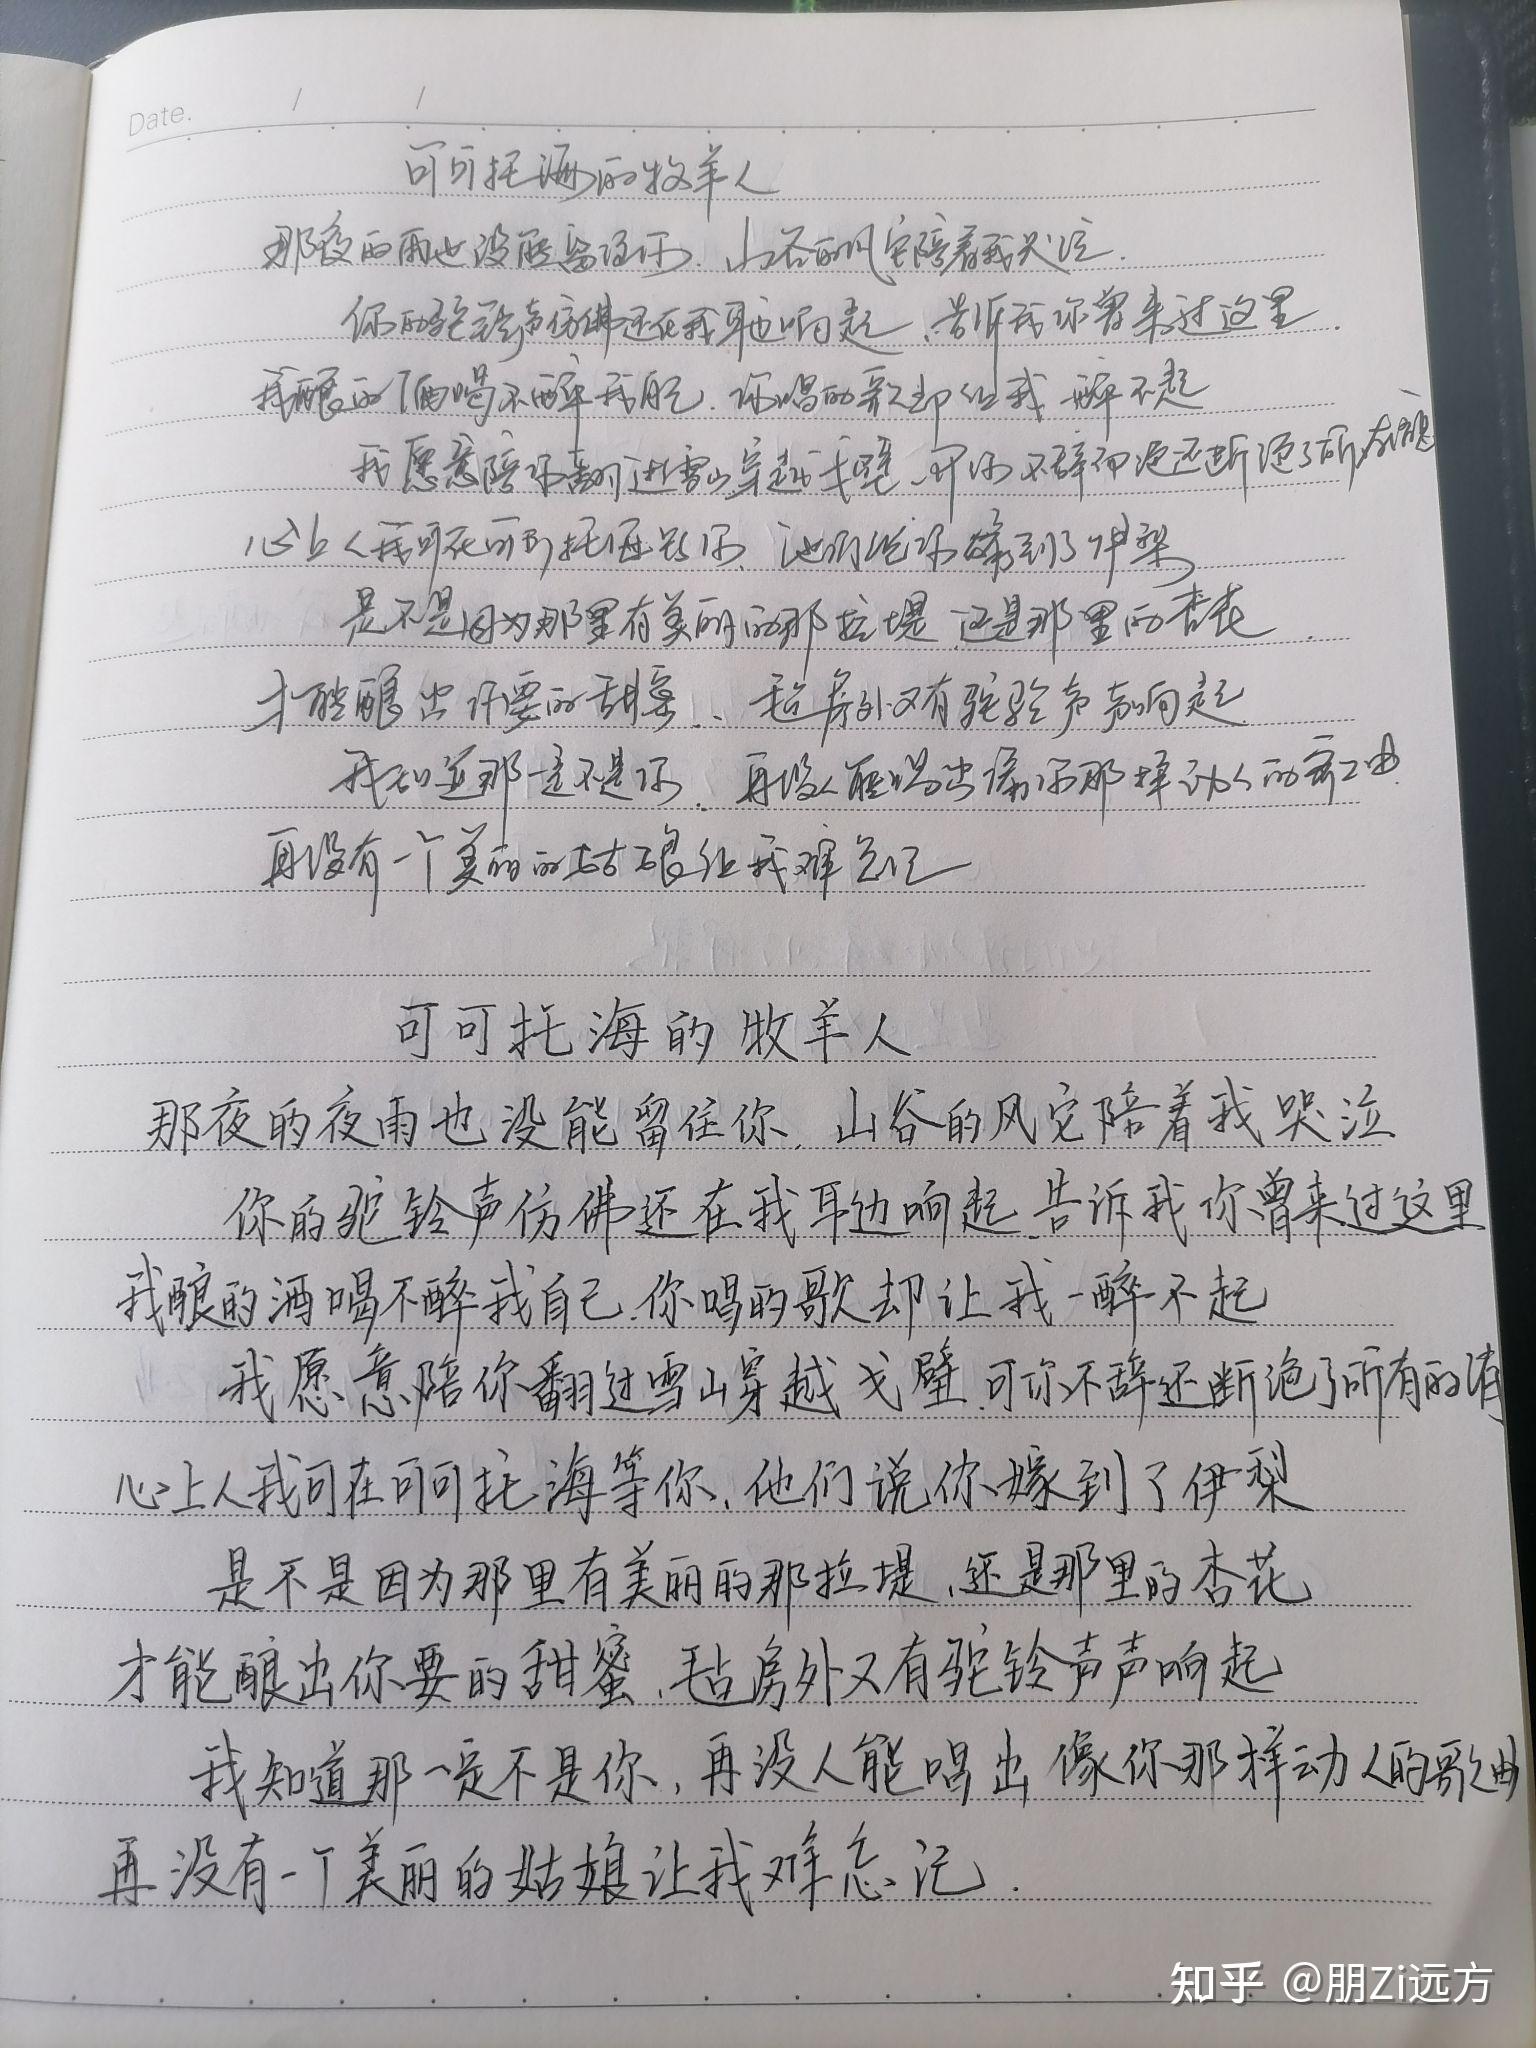 Date. / /
可可托海的牧羊人
那夜的雨也没能留住你.山谷的风它陪着我哭泣.
你的驼铃声仿佛还在我耳边响起、告诉我你曾来过这里.
我酿的酒喝不醉我自己.你唱的歌却让我一醉不起
我愿意陪你翻过雪山穿越戈壁、可你不辞而还断绝了所有
心上人我可在可可托海等你、他们说你嫁到了伊犁
是不是因为那里有美丽的那拉堤.还是那里的杏花.
才能酿出你要的甜蜜.、毡房外又有驼铃声声响起
我知道那一定不是你.再没人能唱出像你那样动人的歌曲.
再没有一个美丽的姑娘让我难忘记
可可托海的牧羊人
那夜的夜雨也没能留住你.山谷的风它陪着我哭泣
你的驼铃声仿佛还在我耳边响起.告诉我你曾来过这里
我酿的酒喝不醉我自己.你唱的歌却让我一醉不起
我愿意陪你翻过雪山穿越戈壁.可你不辞还断绝了所有的消
心上人我可在可可托海等你、他们说你嫁到了伊梨
是不是因为那里有美丽的那拉堤、还是那里的杏花
才能酿出你要的甜蜜、毡房外又有驼铃声声响起
我知道那一定不是你,再没人能唱出像你那样动人的歌曲
再没有一个美丽的姑娘让我难忘记.
知乎 @朋Zi远方